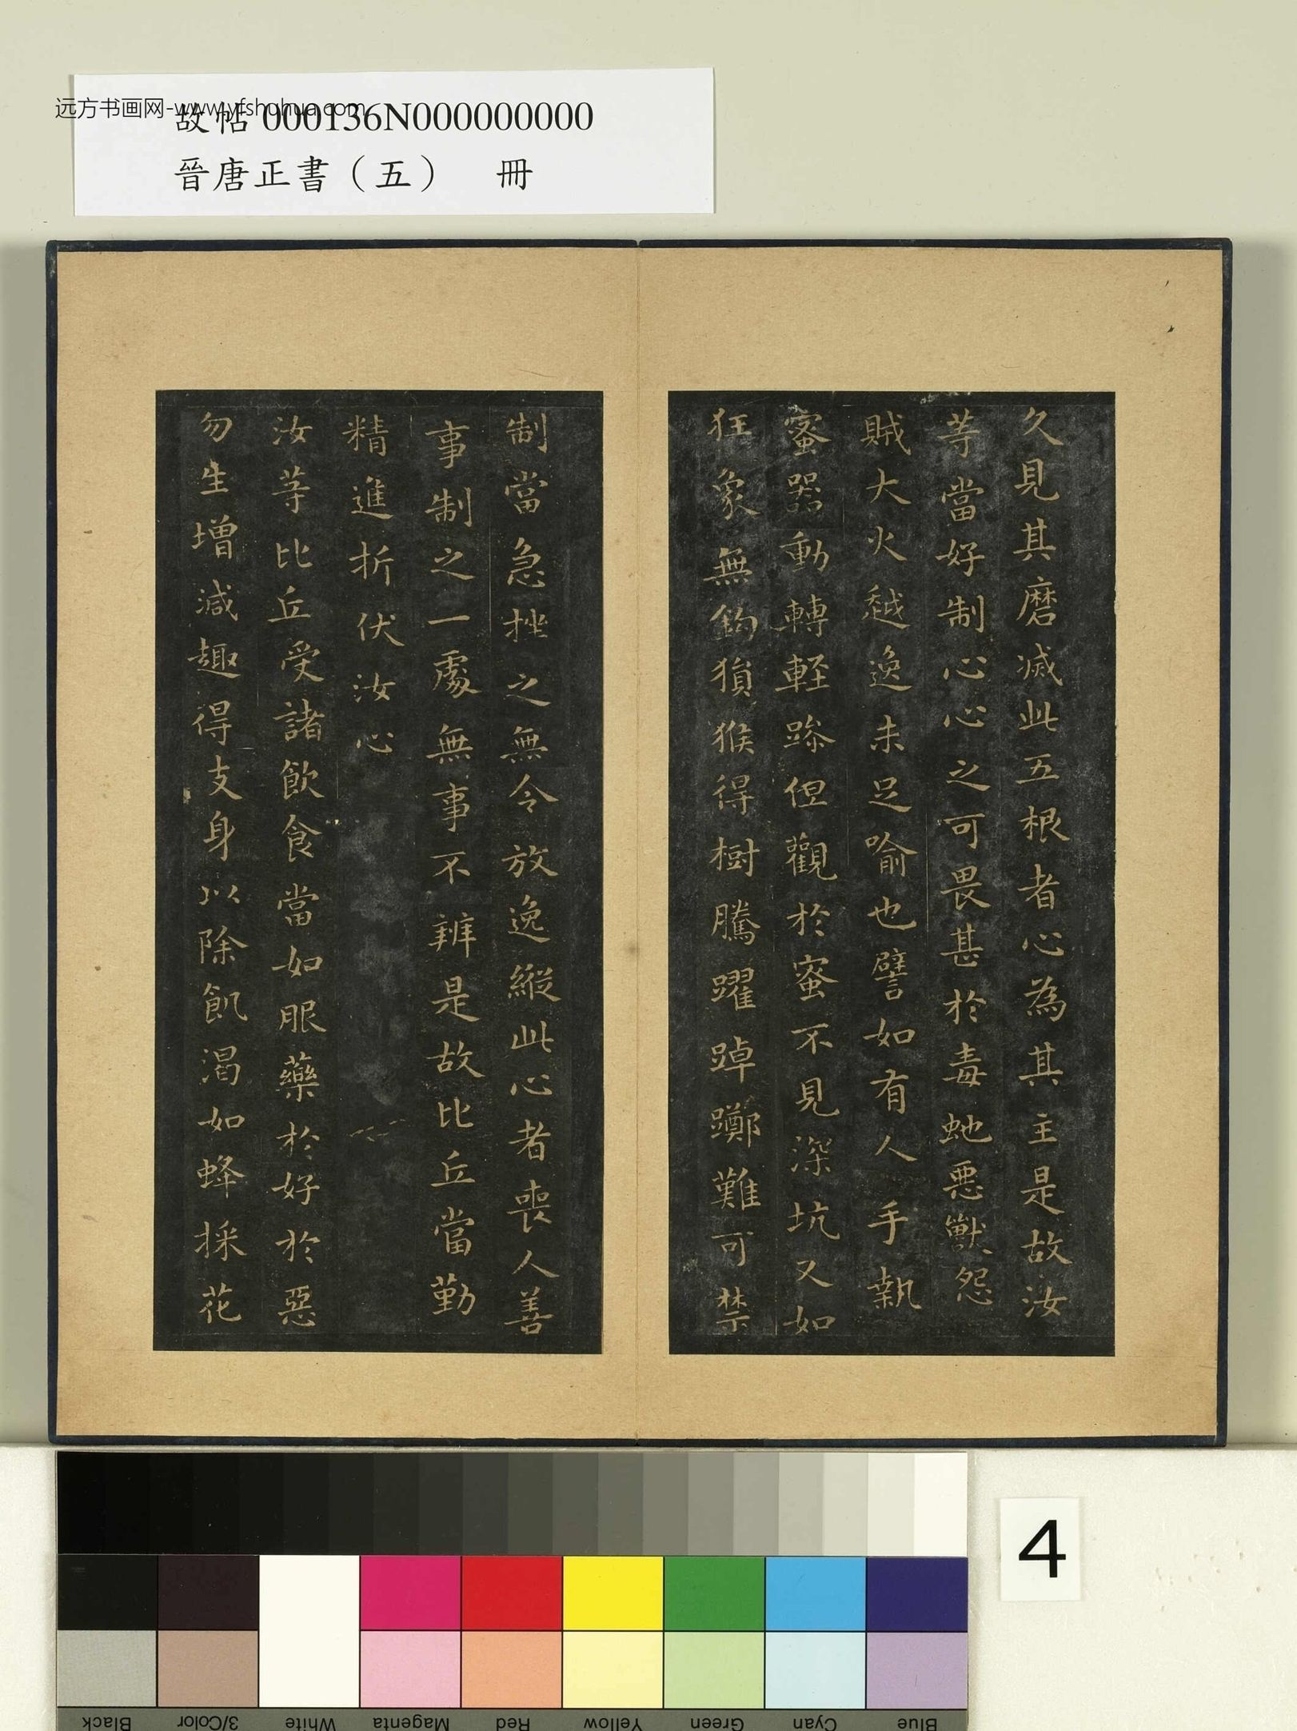 远方书画网-www.yfshuhua.com
故帖 000136N000000000
晉唐正書（五） 冊
久見其磨滅此五根者心為其主是故汝
等當好制心心之可畏甚於毒虵惡獸怨
賊大火越逸未足喻也譬如有人手執
蜜器動轉軽躁但觀於蜜不見深坑又如
狂象無鈎猨猴得樹騰躍踔躑難可禁
制當急挫之無令放逸縱此心者喪人善
事制之一處無事不辨是故比丘當勤
精進折伏汝心
汝等比丘受諸飲食當如服藥於好於惡
勿生增減趣得支身以除飢渴如蜂採花
4
Black
3/Color
White
Magenta
Red
Yellow
Green
Cyan
Blue